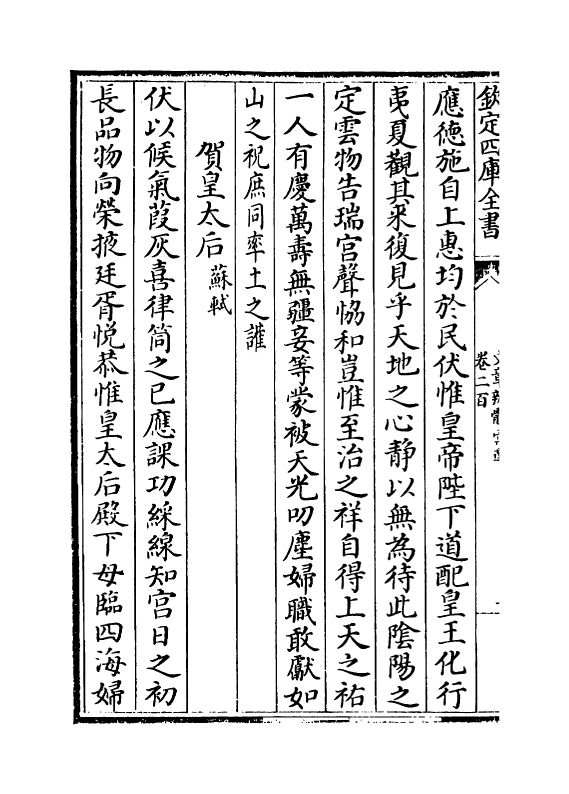 欽定四庫全書
卷二百
應德施自上惠均於民伏惟皇帝陛下道配皇王化行
夷夏觀其来復見乎天地之心靜以無為待此陰陽之
定雲物告瑞宫聲恊和豈惟至治之祥自得上天之祐
一人有慶萬壽無疆妾等蒙被天光叨塵婦職敢獻如
山之祝庶同率土之讙
賀皇太后 蘇軾
伏以候氣葭灰喜律筒之已應課功綵線知宫日之初
長品物向榮掖廷胥悦恭惟皇太后殿下母臨四海婦